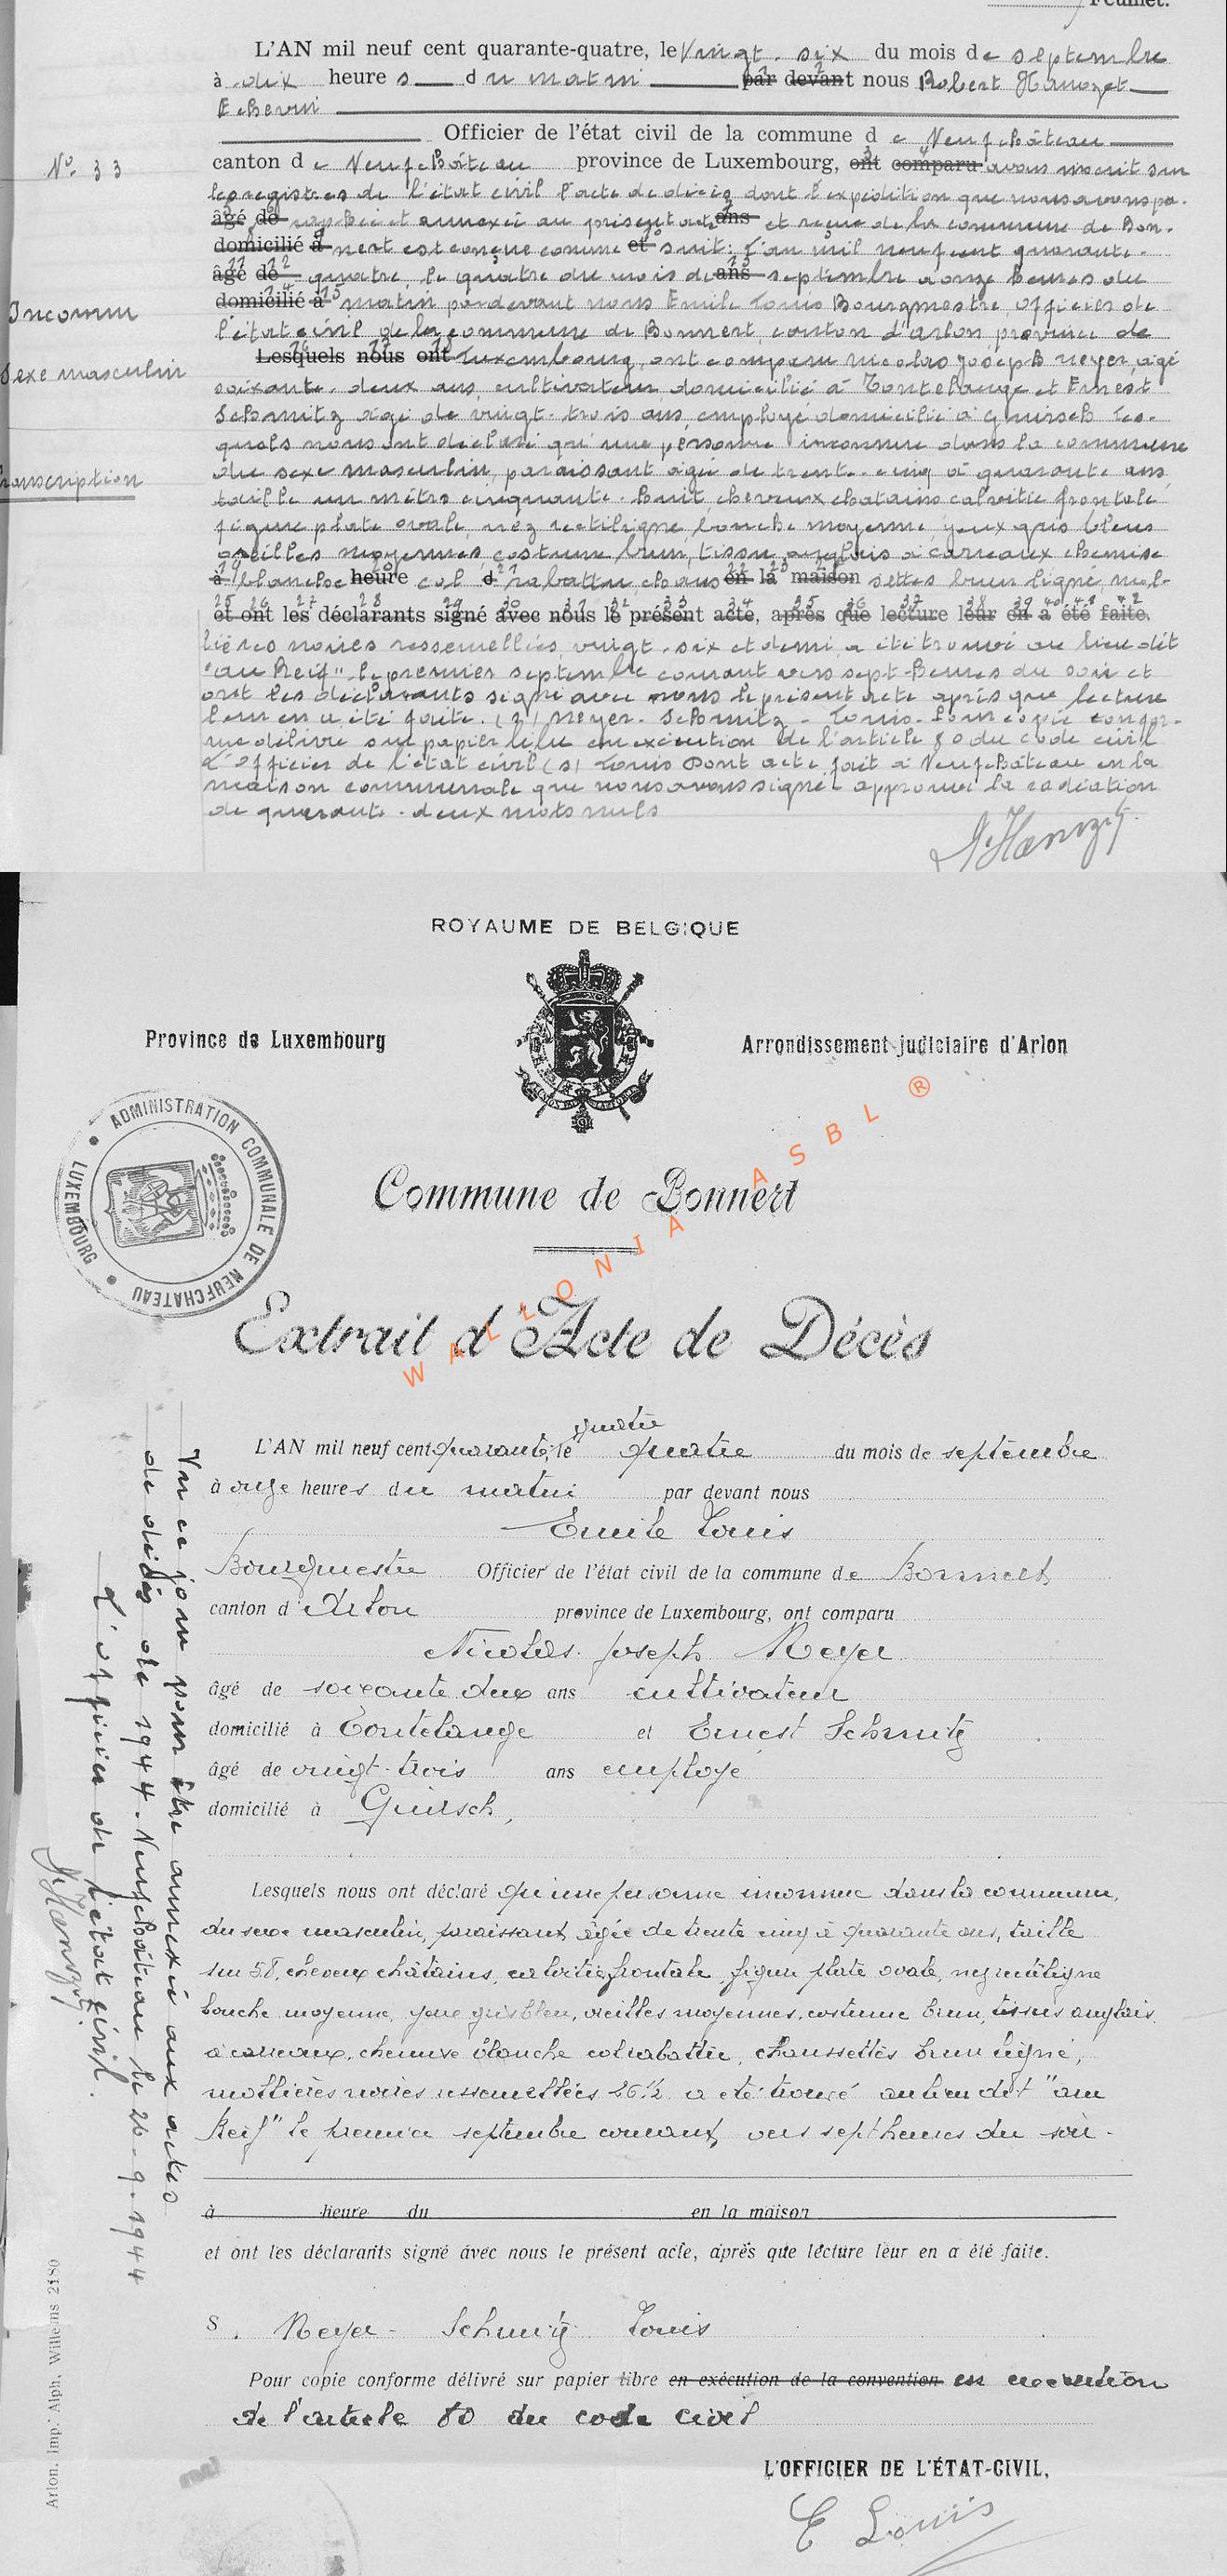 Feuillet.
L'AN mil neuf cent quarante-quatre, le Vingt-six du mois de septembre
à dix heures du matin par devant nous Robert Hanozet
Echevin
Officier de l'état civil de la commune de Neufchâteau
N° 33
canton de Neufchâteau province de Luxembourg, ont comparu avons inscrit sur
les registres de l'état civil l'acte de décès dont l'expédition que nous avons pa-
âgé de raphée et annexée au présent acte ans et reçue de la commune de Bon-
domicilié à nert est conçue comme et suit: L'an mil neuf cent quarante-
âgé de quatre, le quatre du mois de ans septembre à onze heures du
Inconnu
domicilié à matin pardevant nous Emile Louis Bourgmestre officier de
l'état civil de la commune de Bonnert, canton d'Arlon, province de
Lesquels nous ont Luxembourg, ont comparu Nicolas Joseph Neyer, âgé
Sexe masculin
soixante-deux ans, cultivateur, domicilié à Tontelange et Ernest
Schmitz âgé de vingt-trois ans, employé domicilié à Guirsch les-
quels nous ont déclaré qu'une personne inconnue dans la commune
du sexe masculin, paraissant âgé de trente-cinq à quarante ans
Transcription
taille un mètre cinquante-huit, cheveux chatains calvitie frontale
figure plate ovale, nez rectiligne bouche moyenne, yeux gris bleus
oreilles moyennes, costume brun, tissu anglais à carreaux chemise
à blanche heure col d rabattu chaus en la maison settes brun ligné, mol-
et ont les déclarants signé avec nous le présent acte, après que lecture leur en a été faite.
lières noires ressemellées vingt-six et demi, a été trouvé au lieu dit
"am Reif" le premier septembre courant vers sept heures du soir et
ont les déclarants signé avec nous le présent acte après que lecture
leur en a été faite. (s) Neyer - Schmitz - Louis. Pour copie confor-
me délivré sur papier libre en exécution de l'article 80 du code civil
L'officier de l'état civil (s) Louis Dont acte, fait à Neufchâteau en la
maison communale que nous avons signé approuvé la radiation
de quarante-deux mots nuls
R. Hanozet
ROYAUME DE BELGIQUE
Province de Luxembourg
Arrondissement judiciaire d'Arlon
ADMINISTRATION COMMUNALE DE NEUFCHATEAU
LUXEMBOURG
WALLONIA ASBL ®
Commune de Bonnert
Extrait d'Acte de Décès
quatre
L'AN mil neuf cent quarante, le quatre du mois de septembre
à onze heures du matin par devant nous
Emile Louis
Bourgmestre Officier de l'état civil de la commune de Bonnert
canton d'Arlon province de Luxembourg, ont comparu
Nicolas Joseph Neyer
âgé de soixante deux ans cultivateur
domicilié à Tontelange et Ernest Schmitz
âgé de vingt-trois ans employé
domicilié à Guirsch,
Lesquels nous ont déclaré qu'une personne inconnue dans la commune,
du sexe masculin, paraissant âgée de trente cinq à quarante ans, taille
1m 58, cheveux châtains, calvitie frontale, figure plate ovale, nez rectiligne
bouche moyenne, yeux gris bleu, oreilles moyennes, costume brun, tissus anglais
à carreaux, chemise blanche col rabattu, chaussettes brun ligné,
mollières noires ressemellées 26 1/2 a été trouvé au lieu dit "am
Reif" le premier septembre courant, vers sept heures du soir.
à heure du en la maison
et ont les déclarants signé avec nous le présent acte, après que lecture leur en a été faite.
S. Neyer - Schmitz Louis
Pour copie conforme délivré sur papier libre en exécution de la convention en exécution
de l'article 80 du code civil
L'OFFICIER DE L'ÉTAT-CIVIL,
E Louis
Vu ce jour pour être annexé aux actes
de décès de 1944. Neufchâteau le 26-9-1944
L'officier de l'état civil.
R. Hanozet
Arlon, Imp. Alph. Willems 2180